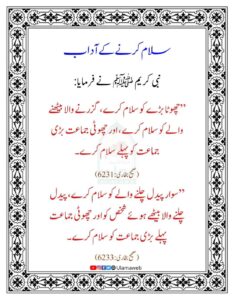 سلام کرنے کے آداب
نبی کریم ﷺ نے فرمایا:
”چھوٹا بڑے کو سلام کرے، گزرنے والا بیٹھنے
والے کو سلام کرے، اور چھوٹی جماعت بڑی
جماعت کو پہلے سلام کرے۔
(صحیح بخاری: 6231)
”سوار پیدل چلنے والے کو سلام کرے، پیدل
چلنے والا بیٹھے ہوئے شخص کو اور چھوٹی جماعت
پہلے بڑی جماعت کو سلام کرے۔
(صحیح بخاری: 6233)
Ulamaweb